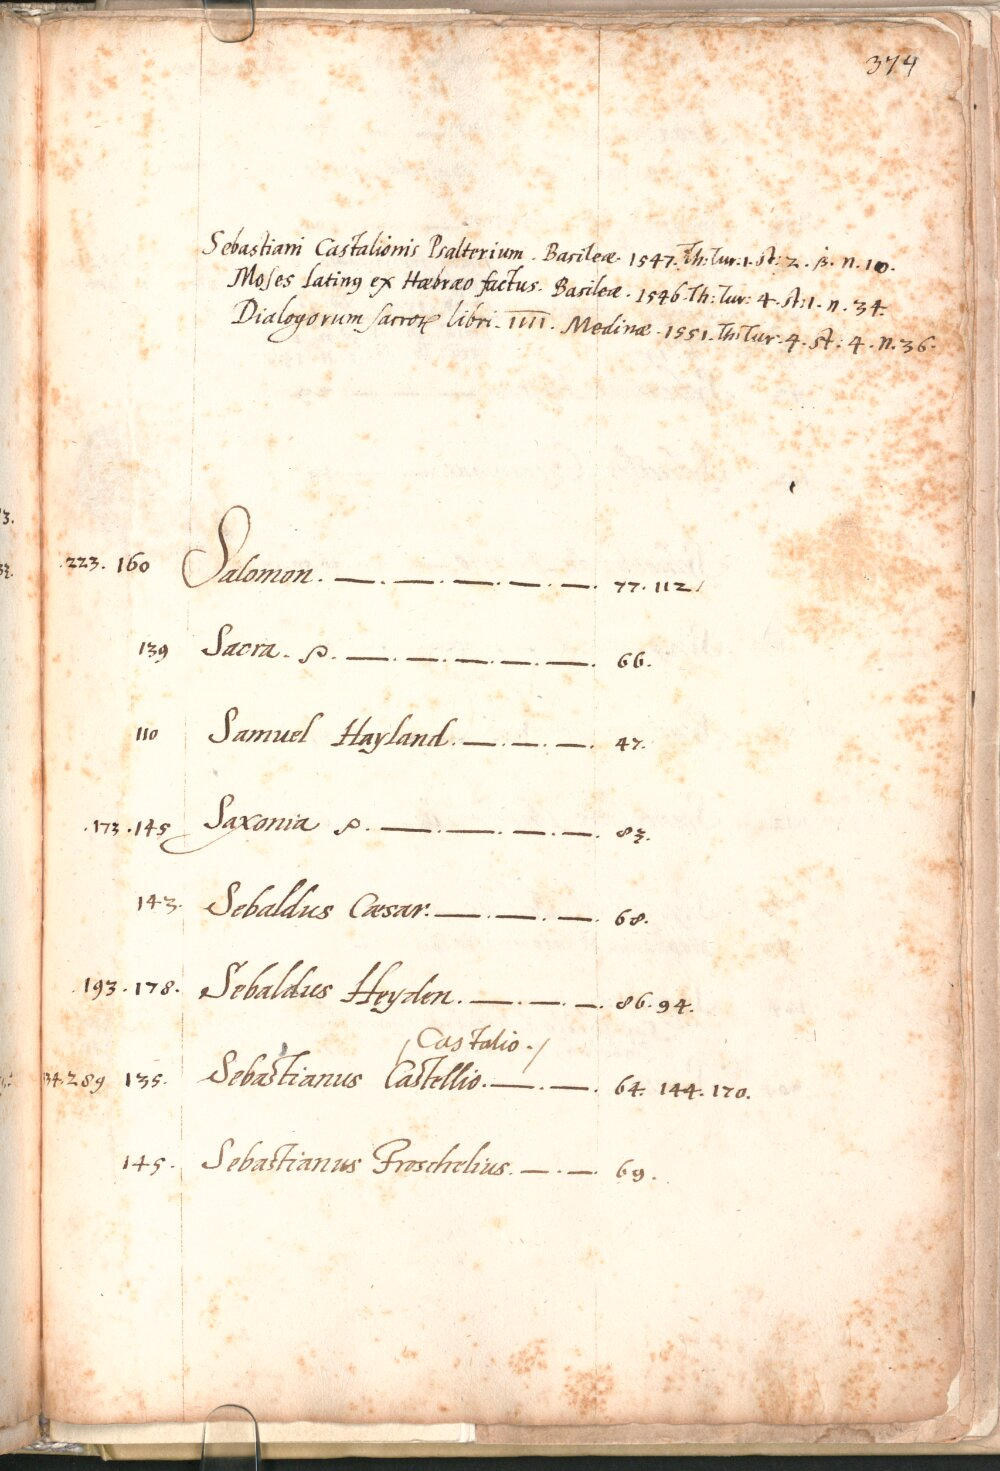 374
Sebastiani Castalionis Psalterium. Basileæ. 1547. Th: Tur. 1. St: 2. β. n. 10.
Moses latinꝰ ex Hæbræo factus. Basileæ. 1546. Th: Tur: 4. St: 1. n. 34.
Dialogorum sacroꝝ libri. IIII. Medinæ. 1551. Th: Tur. 4. St: 4. n. 36.
.223. 160 Salomon. — . — . — . — . — . 77. 112.
139 Sacra. — . — . — . — . — . 66.
110 Samuel Hayland. — . — . — . 47.
.173. 145 Saxonia — . — . — . — . 83.
143. Sebaldus Cæsar. — . — . — . 68.
.193. 178. Sebaldus Heyden. — . — . — . 86. 94.
(Castalio.)
289 135. Sebastianus Castellio. — . — . 64. 144. 170.
145. Sebastianus Froschelius. — . — . 69.